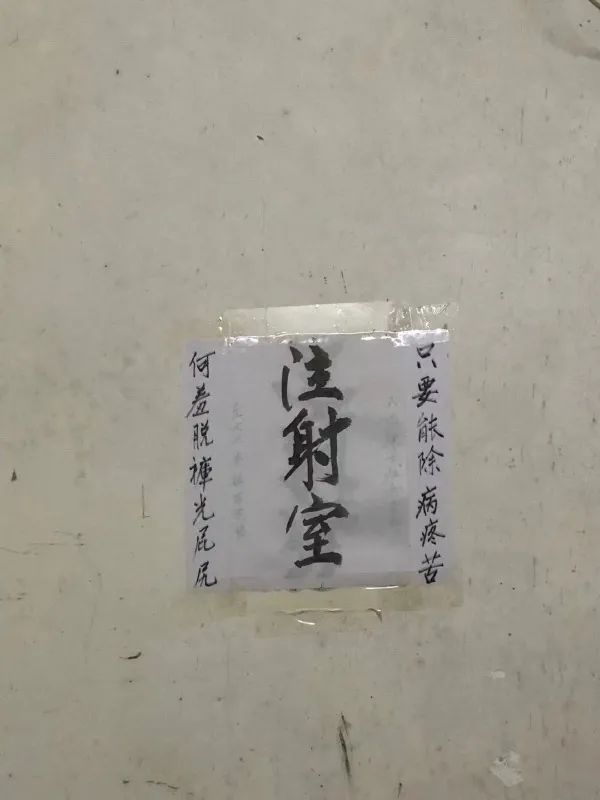 只要能除病疼苦
注射室
何羞脱褲光屁尻